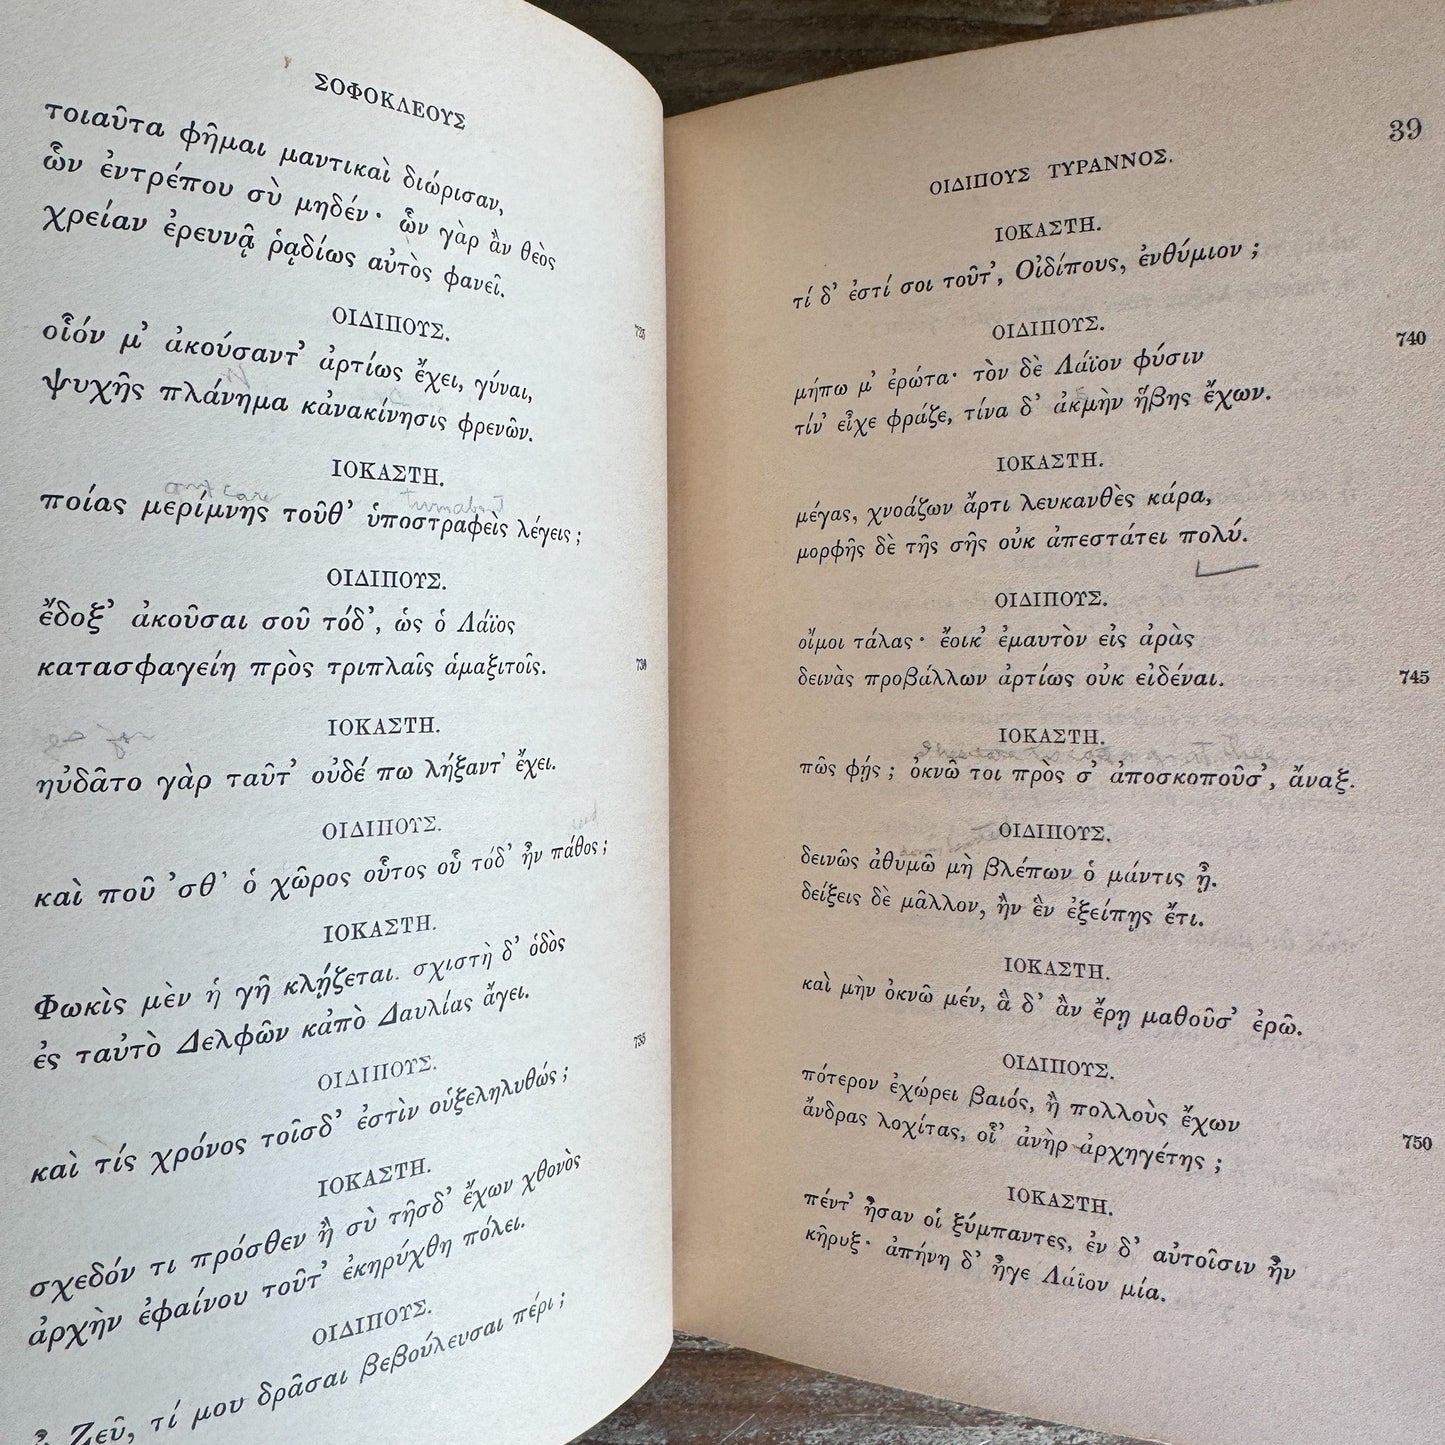 ΣΟΦΟΚΛΕΟΥΣ
τοιαῦτα φῆμαι μαντικαὶ διώρισαν,
ὧν ἐντρέπου σὺ μηδέν· ὧν γὰρ ἂν θεὸς
χρείαν ἐρευνᾷ ῥᾳδίως αὐτὸς φανεῖ.
ΟΙΔΙΠΟΥΣ.
725
οἷόν μ' ἀκούσαντ' ἀρτίως ἔχει, γύναι,
ψυχῆς πλάνημα κἀνακίνησις φρενῶν.
ΙΟΚΑΣΤΗ.
care turnabout
ποίας μερίμνης τοῦθ' ὑποστραφεὶς λέγεις;
ΟΙΔΙΠΟΥΣ.
ἔδοξ' ἀκοῦσαι σοῦ τόδ', ὡς ὁ Λάϊος
κατασφαγείη πρὸς τριπλαῖς ἁμαξιτοῖς. 730
ΙΟΚΑΣΤΗ.
ηὐδᾶτο γὰρ ταῦτ' οὐδέ πω λήξαντ' ἔχει.
ΟΙΔΙΠΟΥΣ.
καὶ ποῦ 'σθ' ὁ χῶρος οὗτος οὗ τόδ' ἦν πάθος;
ΙΟΚΑΣΤΗ.
Φωκὶς μὲν ἡ γῆ κλῄζεται. σχιστὴ δ' ὁδὸς
ἐς ταὐτὸ Δελφῶν κἀπὸ Δαυλίας ἄγει.
ΟΙΔΙΠΟΥΣ.
735
καὶ τίς χρόνος τοῖσδ' ἐστὶν οὑξεληλυθώς;
ΙΟΚΑΣΤΗ.
σχεδόν τι πρόσθεν ἢ σὺ τῆσδ' ἔχων χθονὸς
ἀρχὴν ἐφαίνου τοῦτ' ἐκηρύχθη πόλει.
ΟΙΔΙΠΟΥΣ.
ὦ Ζεῦ, τί μου δρᾶσαι βεβούλευσαι πέρι;
39
ΟΙΔΙΠΟΥΣ ΤΥΡΑΝΝΟΣ.
ΙΟΚΑΣΤΗ.
τί δ' ἐστί σοι τοῦτ', Οἰδίπους, ἐνθύμιον;
ΟΙΔΙΠΟΥΣ.
μήπω μ' ἐρώτα· τὸν δὲ Λάϊον φύσιν 740
τίν' εἶχε φράζε, τίνα δ' ἀκμὴν ἥβης ἔχων.
ΙΟΚΑΣΤΗ.
μέγας, χνοάζων ἄρτι λευκανθὲς κάρα,
μορφῆς δὲ τῆς σῆς οὐκ ἀπεστάτει πολύ.
ΟΙΔΙΠΟΥΣ.
οἴμοι τάλας· ἔοικ' ἐμαυτὸν εἰς ἀρὰς
δεινὰς προβάλλων ἀρτίως οὐκ εἰδέναι. 745
ΙΟΚΑΣΤΗ.
πῶς φῄς; ὀκνῶ τοι πρὸς σ' ἀποσκοποῦσ', ἄναξ.
ΟΙΔΙΠΟΥΣ.
δεινῶς ἀθυμῶ μὴ βλέπων ὁ μάντις ᾖ.
δείξεις δὲ μᾶλλον, ἢν ἓν ἐξείπῃς ἔτι.
ΙΟΚΑΣΤΗ.
καὶ μὴν ὀκνῶ μέν, ἃ δ' ἂν ἔρῃ μαθοῦσ' ἐρῶ.
ΟΙΔΙΠΟΥΣ.
πότερον ἐχώρει βαιός, ἢ πολλοὺς ἔχων
ἄνδρας λοχίτας, οἷ' ἀνὴρ ἀρχηγέτης; 750
ΙΟΚΑΣΤΗ.
πέντ' ἦσαν οἱ ξύμπαντες, ἐν δ' αὐτοῖσιν ἦν
κῆρυξ· ἀπήνη δ' ἦγε Λάϊον μία.